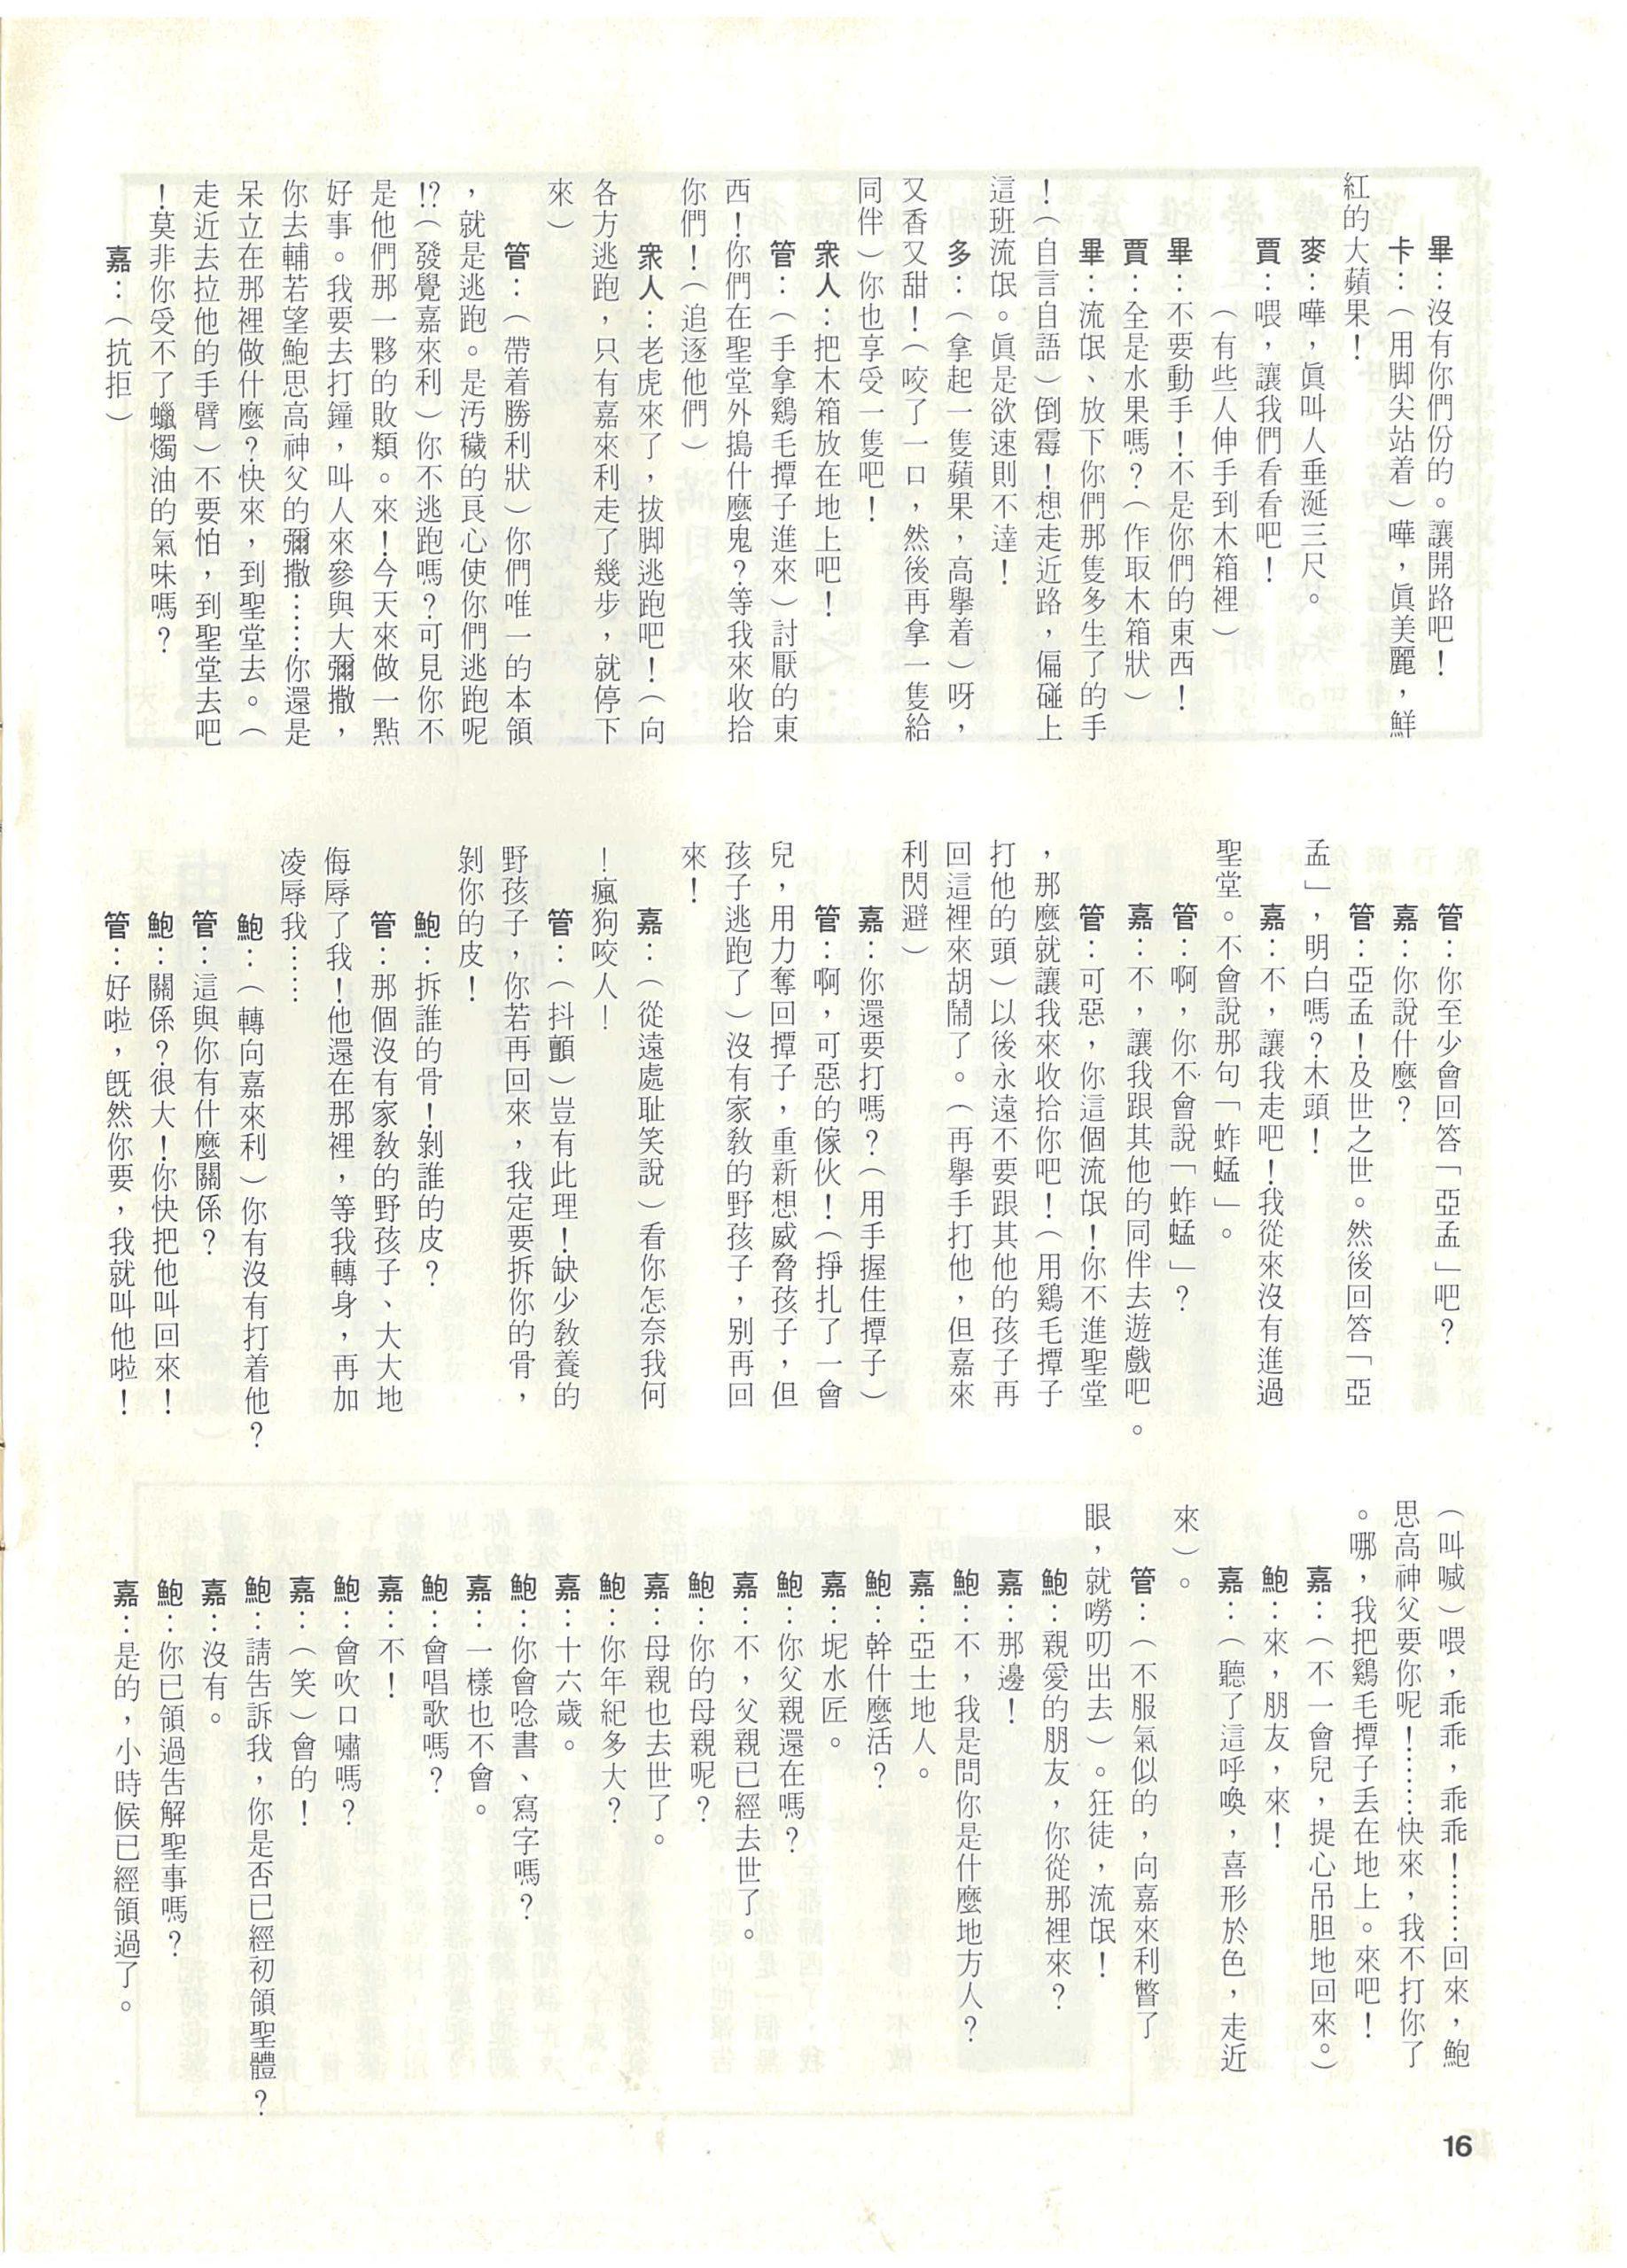 畢：沒有你們份的。讓開路吧！
卡：（用脚尖站着）嘩，眞美麗，鮮
紅的大蘋果！
麥：嘩，眞叫人垂涎三尺。
賈：喂，讓我們看看吧！
（有些人伸手到木箱裡）
畢：不要動手！不是你們的東西！
賈：全是水果嗎？（作取木箱狀）
畢：流氓、放下你們那隻多生了的手
！（自言自語）倒霉！想走近路，偏碰上
這班流氓。眞是欲速則不達！
多：（拿起一隻蘋果，高擧着）呀，
又香又甜！（咬了一口，然後再拿一隻給
同伴）你也享受一隻吧！
衆人：把木箱放在地上吧！
管：（手拿鷄毛撢子進來）討厭的東
西！你們在聖堂外搗什麼鬼？等我來收拾
你們！（追逐他們）
衆人：老虎來了，拔脚逃跑吧！（向
各方逃跑，只有嘉來利走了幾步，就停下
來）
管：（帶着勝利狀）你們唯一的本領
，就是逃跑。是汚穢的良心使你們逃跑呢
!?（發覺嘉來利）你不逃跑嗎？可見你不
是他們那一夥的敗類。來！今天來做一點
好事。我要去打鐘，叫人來參與大彌撒，
你去輔若望鮑思高神父的彌撒……你還是
呆立在那裡做什麼？快來，到聖堂去。（
走近去拉他的手臂）不要怕，到聖堂去吧
！莫非你受不了蠟燭油的氣味嗎？
嘉：（抗拒）
管：你至少會回答「亞孟」吧？
嘉：你說什麼？
管：亞孟！及世之世。然後回答「亞
孟」，明白嗎？木頭！
嘉：不，讓我走吧！我從來沒有進過
聖堂。不會說那句「蚱蜢」。
管：啊，你不會說「蚱蜢」？
嘉：不，讓我跟其他的同伴去遊戲吧。
管：可惡，你這個流氓！你不進聖堂
，那麼就讓我來收拾你吧！（用鷄毛撢子
打他的頭）以後永遠不要跟其他的孩子再
回這裡來胡鬧了。（再擧手打他，但嘉來
利閃避）
嘉：你還要打嗎？（用手握住撢子）
管：啊，可惡的傢伙！（掙扎了一會
兒，用力奪回撢子，重新想威脅孩子，但
孩子逃跑了）沒有家敎的野孩子，别再回
來！
嘉：（從遠處耻笑說）看你怎奈我何
！瘋狗咬人！
管：（抖顫）豈有此理！缺少敎養的
野孩子，你若再回來，我定要拆你的骨，
剝你的皮！
鮑：拆誰的骨！剝誰的皮？
管：那個沒有家敎的野孩子、大大地
侮辱了我！他還在那裡，等我轉身，再加
凌辱我……
鮑：（轉向嘉來利）你有沒有打着他？
管：這與你有什麼關係？
鮑：關係？很大！你快把他叫回來！
管：好啦，旣然你要，我就叫他啦！
（叫喊）喂，乖乖，乖乖！……回來，鮑
思高神父要你呢！……快來，我不打你了
。哪，我把鷄毛撢子丢在地上。來吧！
嘉：（不一會兒，提心吊胆地回來。）
鮑：來，朋友，來！
嘉：（聽了這呼喚，喜形於色，走近
來）。
管：（不服氣似的，向嘉來利瞥了
眼，就嘮叨出去）。狂徒，流氓！
鮑：親愛的朋友，你從那裡來？
嘉：那邊！
鮑：不，我是問你是什麼地方人？
嘉：亞士地人。
鮑：幹什麼活？
嘉：坭水匠。
鮑：你父親還在嗎？
嘉：不，父親已經去世了。
鮑：你的母親呢？
嘉：母親也去世了。
鮑：你年紀多大？
嘉：十六歲。
鮑：你會唸書、寫字嗎？
嘉：一樣也不會。
鮑：會唱歌嗎？
嘉：不！
鮑：會吹口嘯嗎？
嘉：（笑）會的！
鮑：請告訴我，你是否已經初領聖體？
嘉：沒有。
鮑：你已領過告解聖事嗎？
嘉：是的，小時候已經領過了。
16